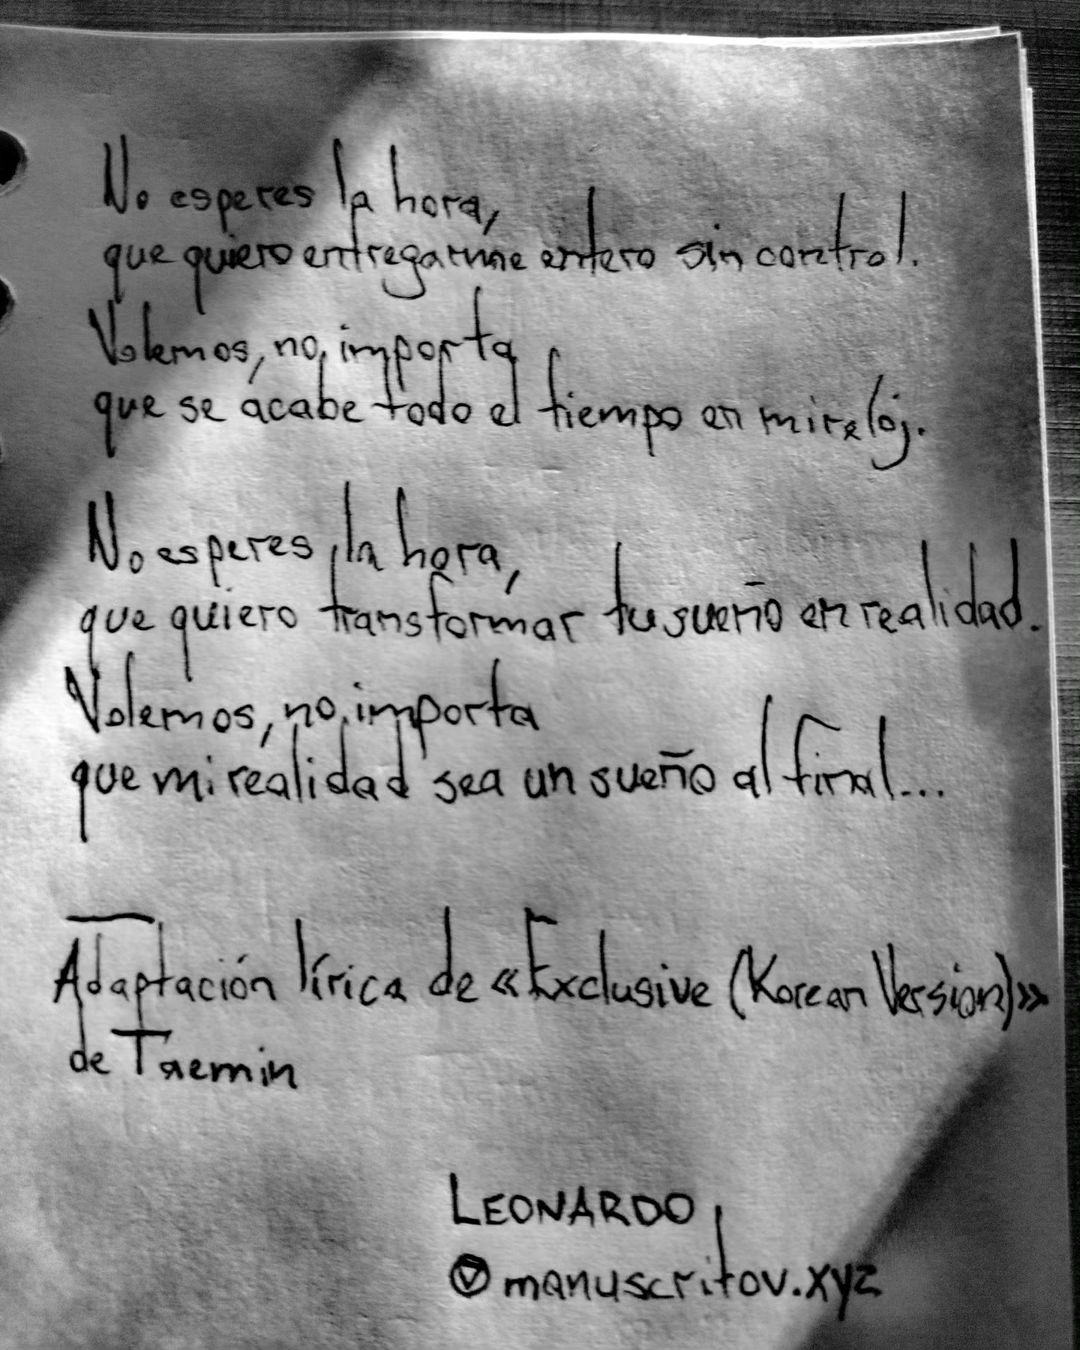 No esperes la hora,
que quiero entregarme entero sin control.
Volemos, no importa
que se acabe todo el tiempo en mi reloj.
No esperes la hora,
que quiero transformar tu sueño en realidad.
Volemos, no importa
que mi realidad sea un sueño al final...
Adaptación lírica de «Exclusive (Korean Version)»
de Taemin
LEONARDO
manuscritov.xyz